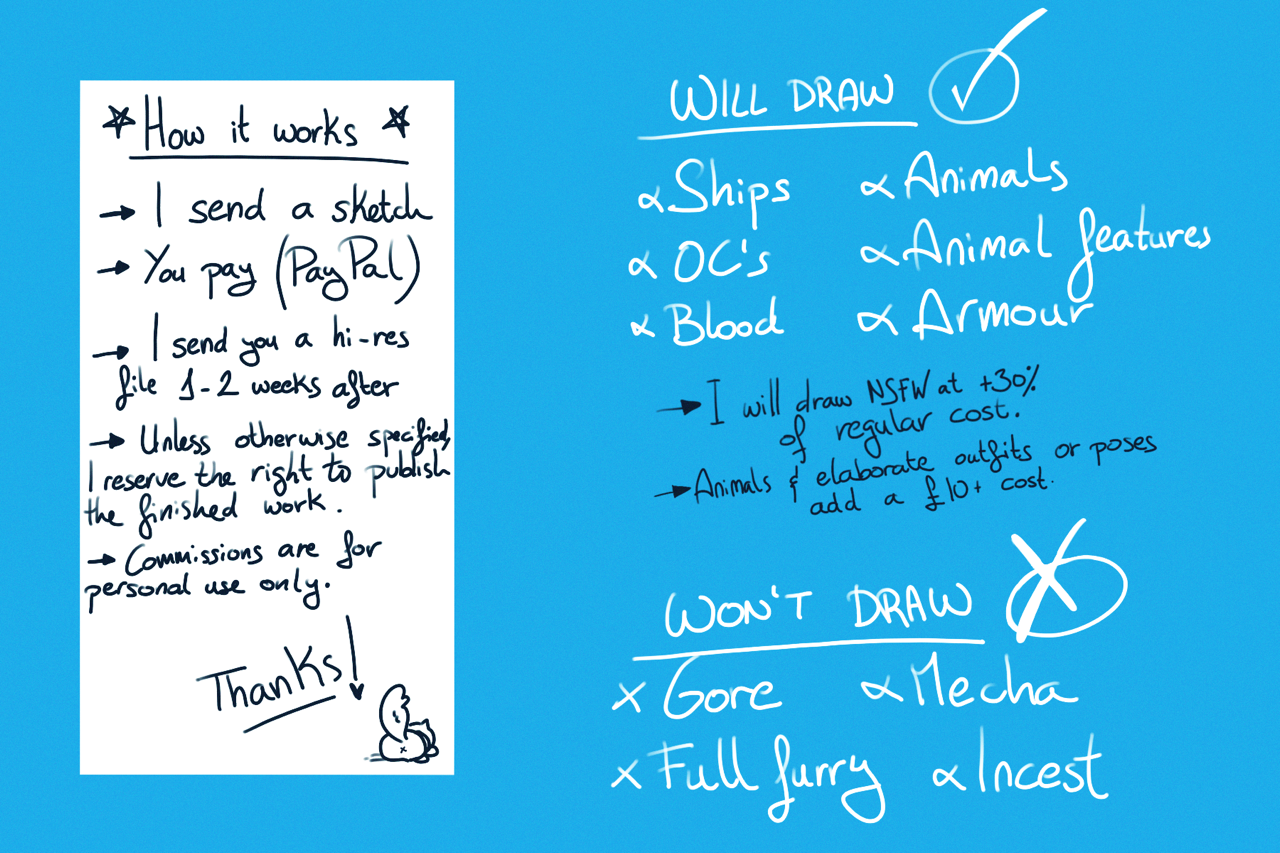 How it works
→ I send a sketch
→ You pay (PayPal)
→ I send you a hi-res
file 1-2 weeks after
→ Unless otherwise specified,
I reserve the right to publish
the finished work.
→ Commissions are for
personal use only.
Thanks!
WILL DRAW
∝ Ships
∝ Animals
∝ OC's
∝ Animal features
∝ Blood
∝ Armour
→ I will draw NSFW at +30%
of regular cost.
→ Animals & elaborate outfits or poses
add a £10+ cost.
WON'T DRAW
x Gore
∝ Mecha
x Full furry
∝ Incest